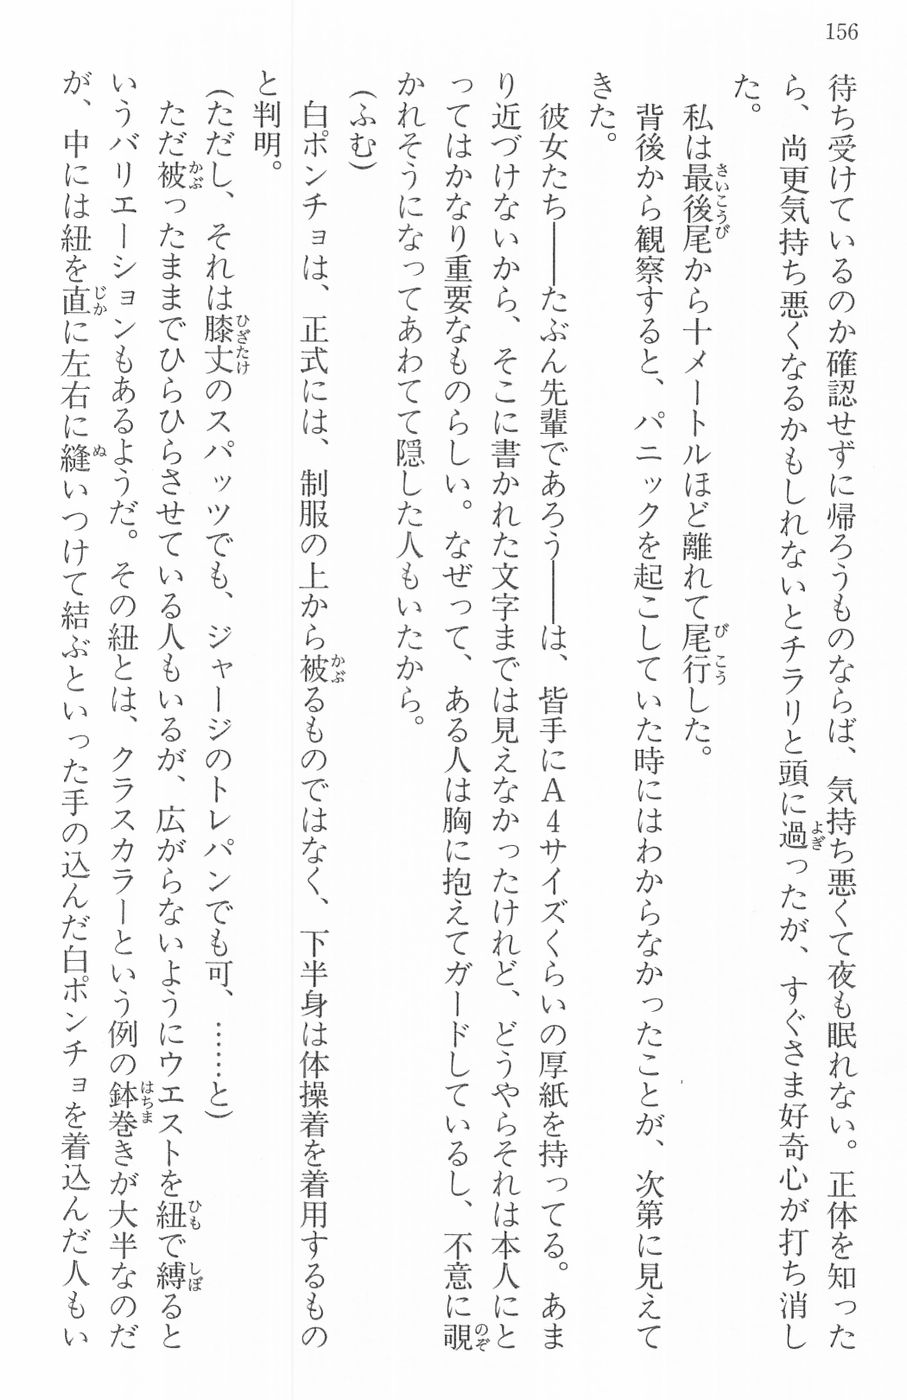 156
待ち受けているのか確認せずに帰ろうものならば、気持ち悪くて夜も眠れない。正体を知った
ら、尚更気持ち悪くなるかもしれないとチラリと頭に過よぎったが、すぐさま好奇心が打ち消し
た。
私は最後尾さいこうびから十メートルほど離れて尾行びこうした。
背後から観察すると、パニックを起こしていた時にはわからなかったことが、次第に見えて
きた。
彼女たち――たぶん先輩であろう――は、皆手にA4サイズくらいの厚紙を持ってる。あま
り近づけないから、そこに書かれた文字までは見えなかったけれど、どうやらそれは本人にと
ってはかなり重要なものらしい。なぜって、ある人は胸に抱えてガードしているし、不意に覗のぞ
かれそうになってあわてて隠した人もいたから。
(ふむ)
白ポンチョは、正式には、制服の上から被かぶるものではなく、下半身は体操着を着用するもの
と判明。
(ただし、それは膝丈ひざたけのスパッツでも、ジャージのトレパンでも可、……と)
ただ被かぶったままでひらひらさせている人もいるが、広がらないようにウエストを紐ひもで縛しぼると
いうバリエーションもあるようだ。その紐とは、クラスカラーという例の鉢巻はちまきが大半なのだ
が、中には紐を直じかに左右に縫ぬいつけて結ぶといった手の込んだ白ポンチョを着込んだ人もい